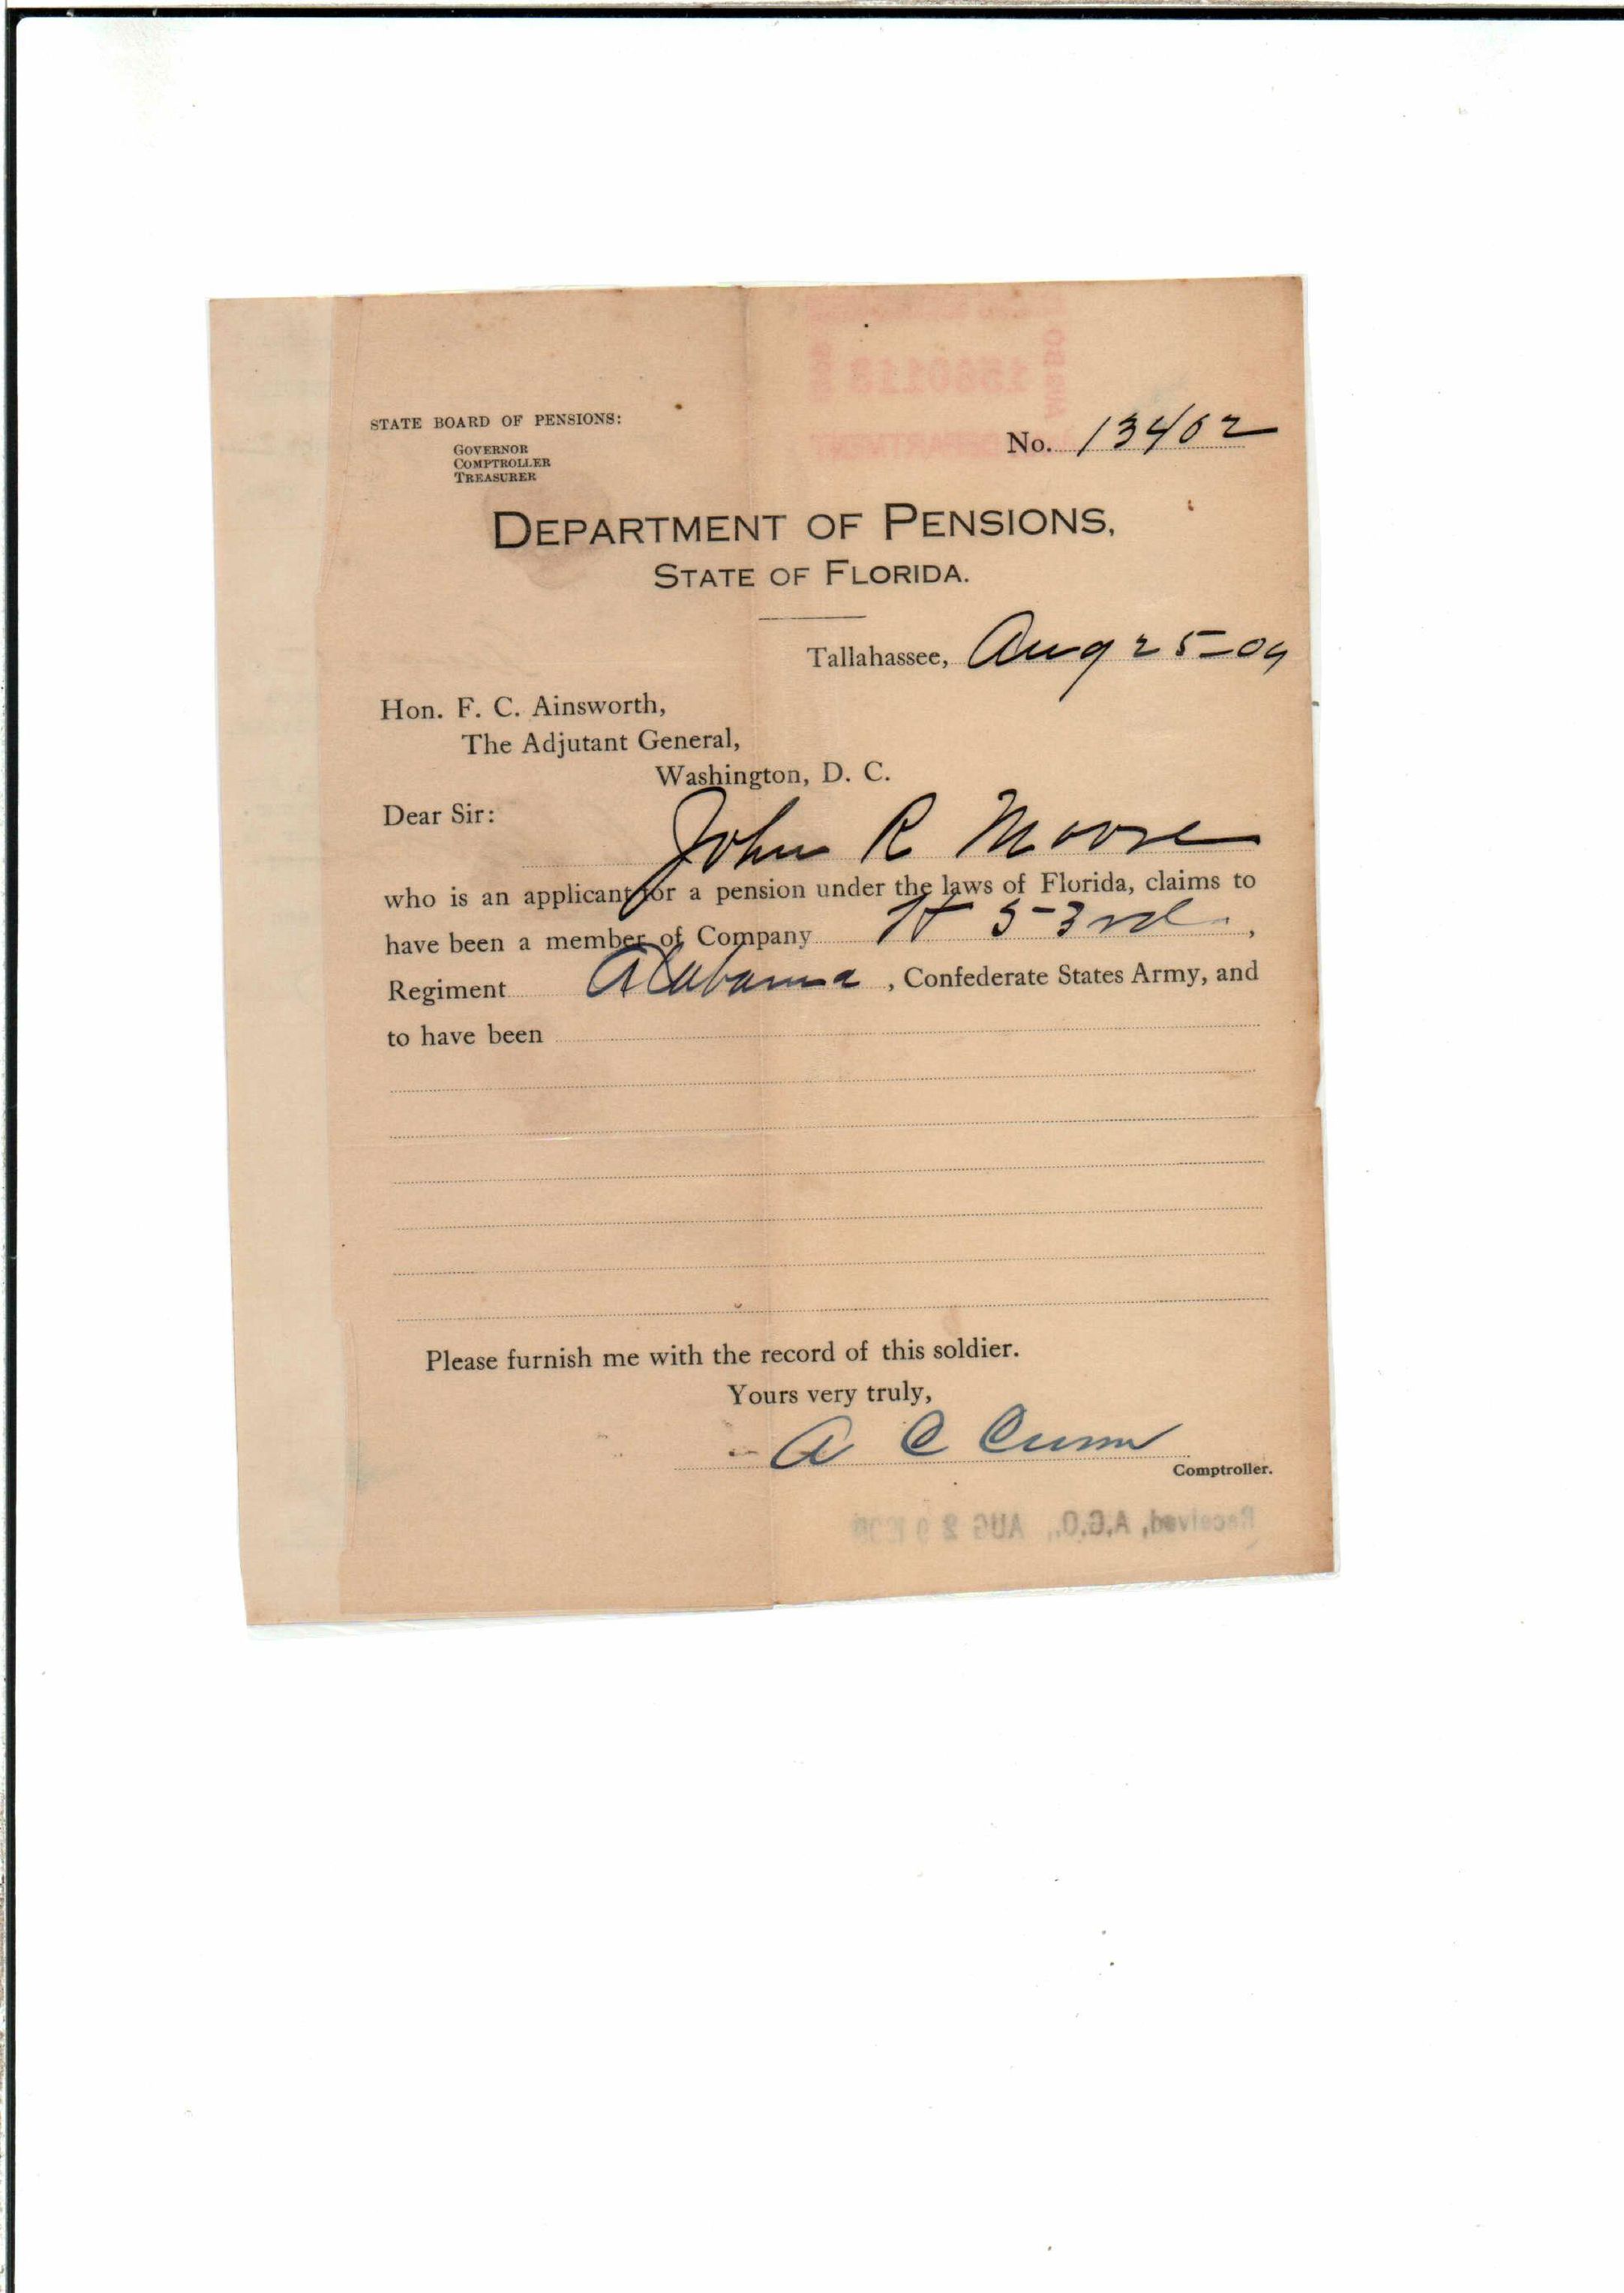 STATE BOARD OF PENSIONS:
GOVERNOR
COMPTROLLER
TREASURER
1580118
No. 13402
DEPARTMENT OF PENSIONS,
STATE OF FLORIDA.
Tallahassee, Aug 25-09
Hon. F. C. Ainsworth,
The Adjutant General,
Washington, D. C.
Dear Sir:
John R Moore
who is an applicant for a pension under the laws of Florida, claims to
have been a member of Company H 53rd,
Regiment Alabama, Confederate States Army, and
to have been
Please furnish me with the record of this soldier.
Yours very truly,
A C Croom
Comptroller.
Received, A.G.O., AUG 29